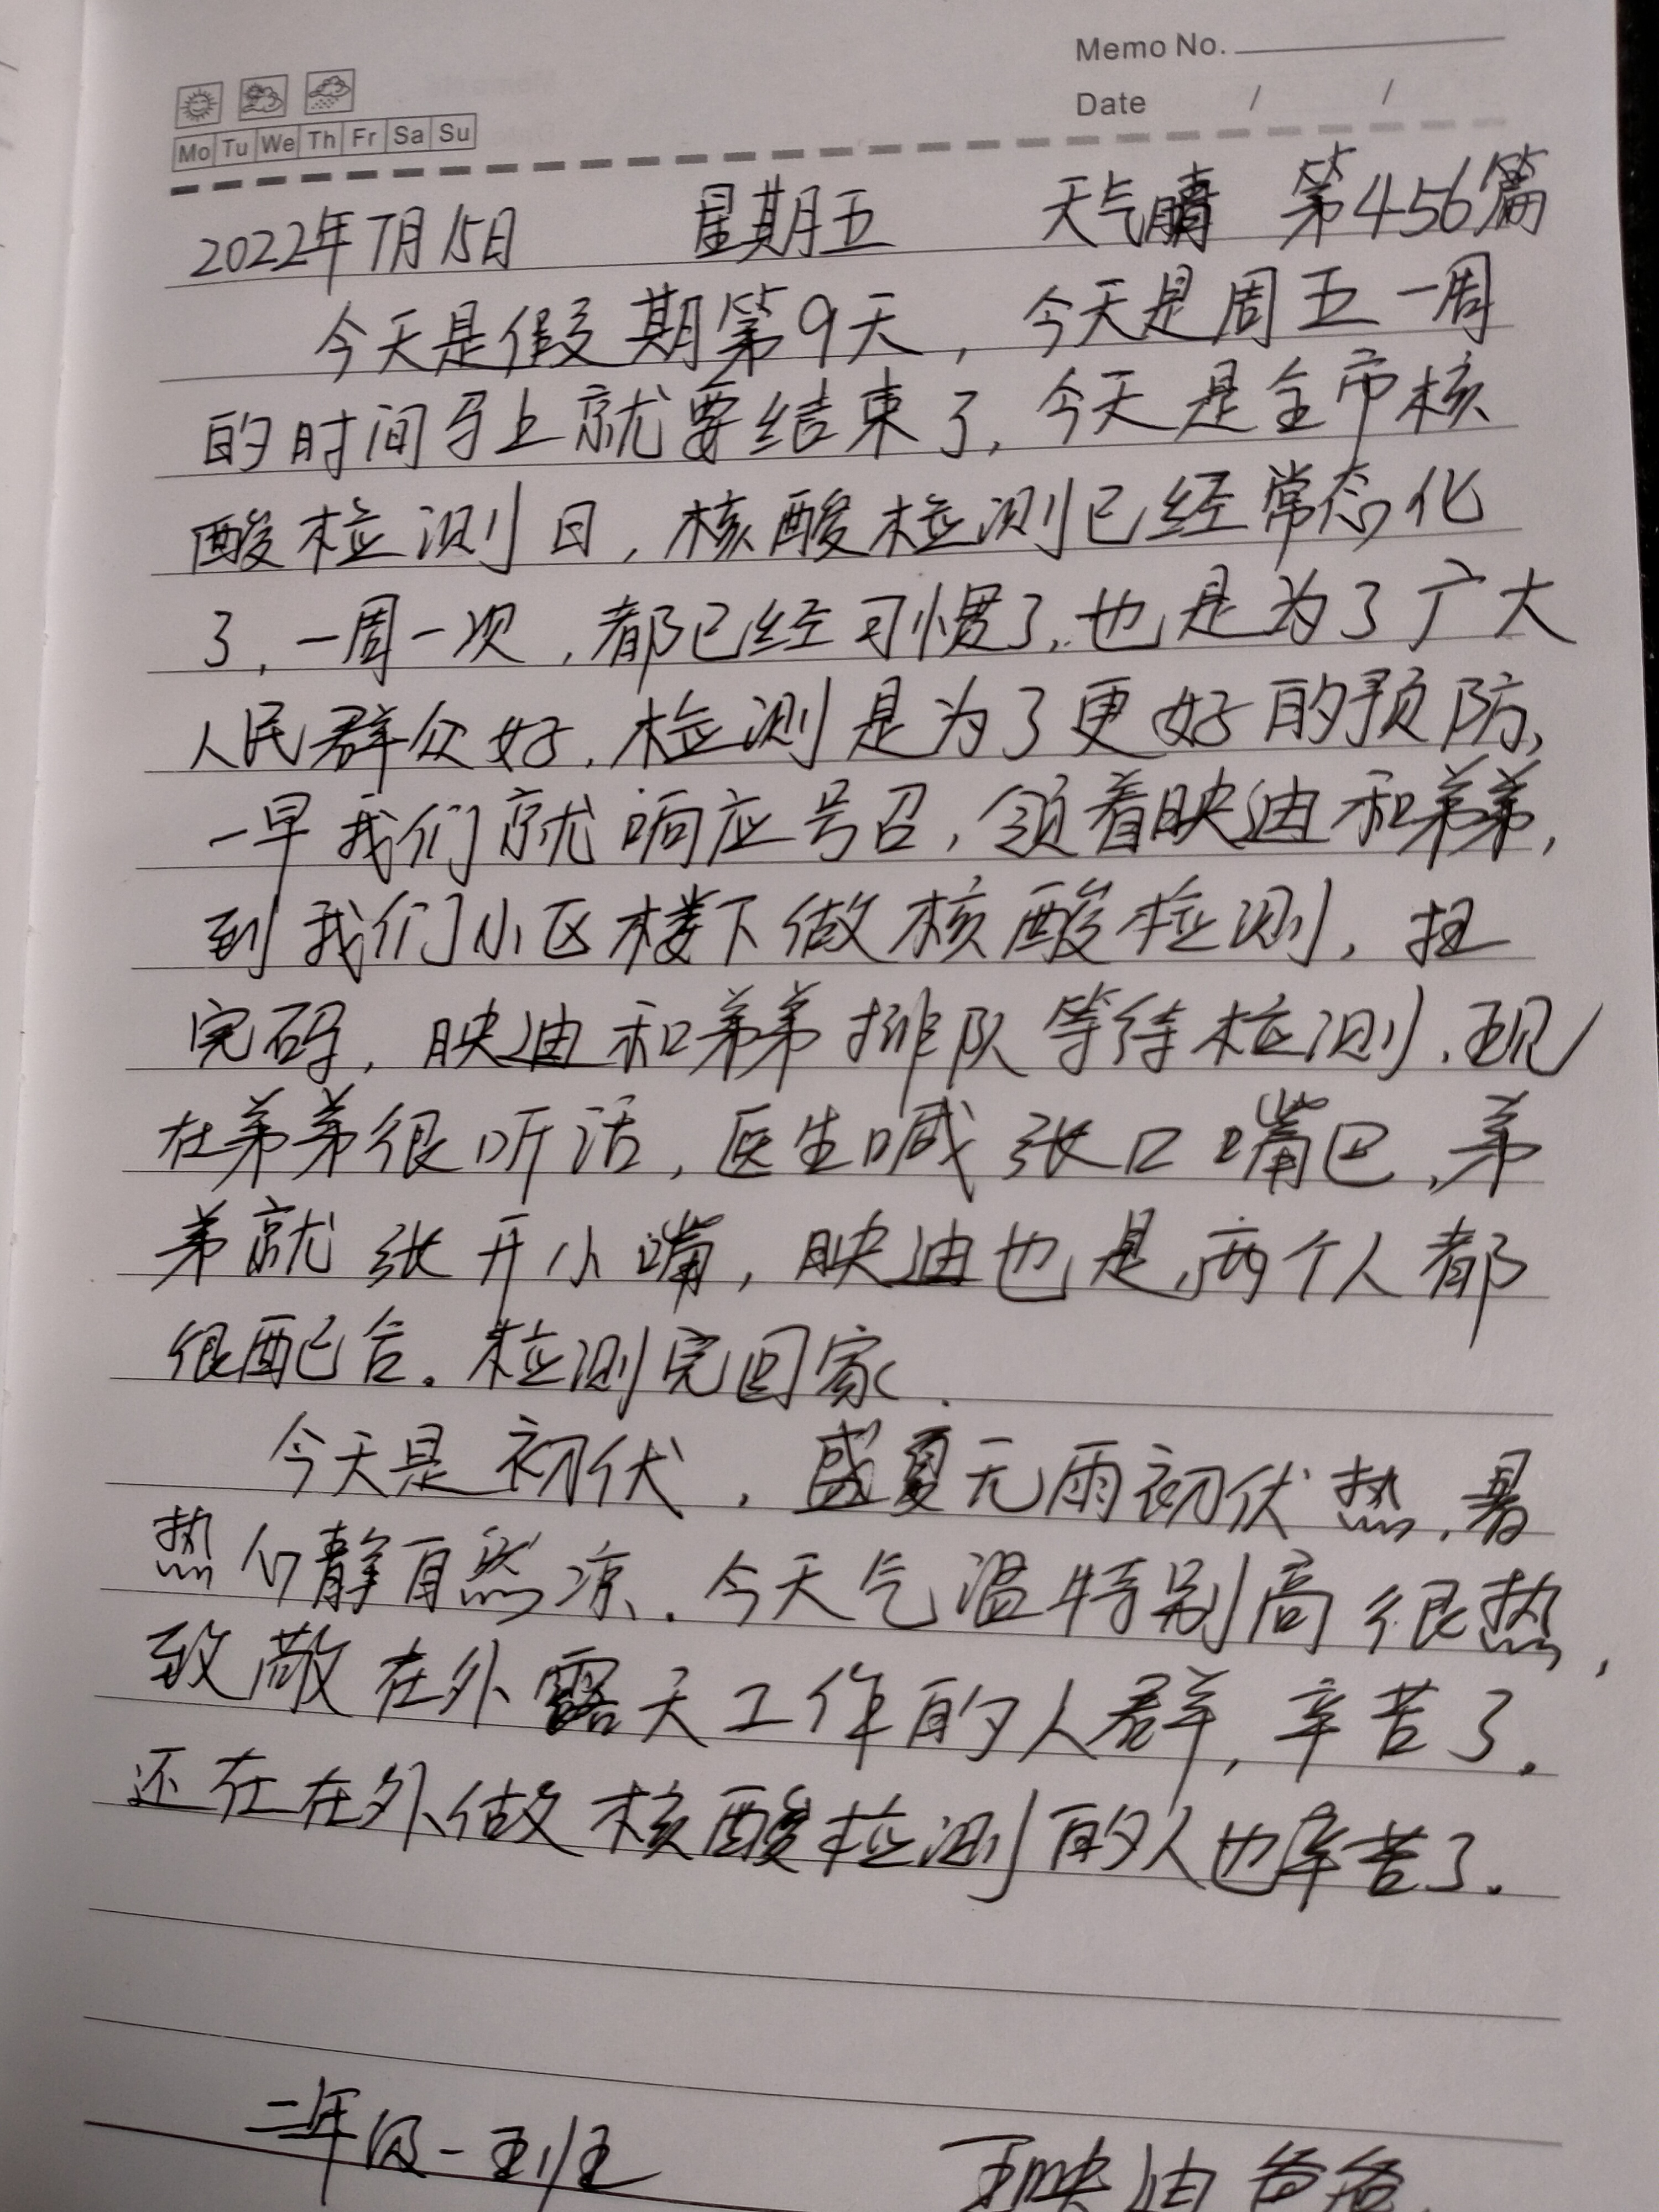 Memo No.
Date / /
Mo Tu We Th Fr Sa Su
2022年7月15日 星期五 天气晴 第456篇
今天是假期第9天，今天是周五一周
的时间马上就要结束了，今天是全市核
酸检测日，核酸检测已经常态化
了，一周一次，都已经习惯了，也是为了广大
人民群众好，检测是为了更好的预防，
一早我们就响应号召，领着映迪和弟弟，
到我们小区楼下做核酸检测，扫
完码，映迪和弟弟排队等待检测，现
在弟弟很听话，医生喊张口嘴巴，弟
弟就张开小嘴，映迪也是，两个人都
很配合。检测完回家.
今天是初伏，盛夏无雨初伏热，暑
热心静自然凉.今天气温特别高很热，
致敬在外露天工作的人群，辛苦了.
还在在外做核酸检测的人也辛苦了.
二年级一班 王映迪爸爸